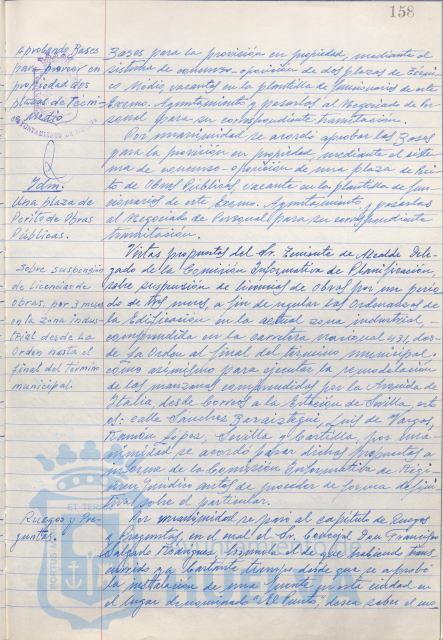 158
Aprobando Bases
para proveer en
propiedad dos
plazas de Técni-
co Medio
Bases para la provisión en propiedad, mediante el
sistema de concurso-oposición de dos plazas de Técni-
co Medio, vacantes en la plantilla de funcionarios de este
Excmo. Ayuntamiento y pasarlas al Negociado de Per-
sonal para su correspondiente tramitación.
Idm.
Una plaza de
Perito de Obras
Públicas.
Por unanimidad se acordó aprobar las Bases
para la provisión en propiedad, mediante el siste-
ma de concurso-oposición de una plaza de Peri-
to de Obras Públicas, vacante en la plantilla de fun-
cionarios de este Excmo. Ayuntamiento, y pasarlas
al Negociado de Personal para su correspondiente
tramitación.
Sobre suspensión
de Licencias de
obras, por 3 meses
en la zona indus-
trial desde La
Orden hasta el
final del término
municipal.
Vistas propuestas del Sr. Teniente de Alcalde Dele-
gado de la Comisión Informativa de Planificación,
sobre suspensión de licencias de obras por un perio-
do de tres meses, a fin de regular las Ordenanzas de
la Edificación en la actual zona industrial,
comprendida en la carretera Nacional 431, des-
de La Orden al final del término municipal,
como asimismo para ejecutar la remodelación
de las manzanas comprendidas por la Avenida de
Italia desde Correos a la Estación de Sevilla, en-
tre: calle Sánchez Barcaiztegui, Luis de Vargas,
Ramón López, Sevilla y Castilla, por una-
nimidad se acordó pasar dichas propuestas a
informe de la Comisión Informativa de Régi-
men Jurídico antes de proceder de forma defini-
tiva sobre el particular.
Ruegos y Pre-
guntas.
Por unanimidad se pasó al capítulo de Ruegos
y Preguntas, en el cual el Sr. Concejal Don Francisco
Salgado Rodríguez formula el de que habiendo trans-
currido ya bastante tiempo desde que se aprobó
la instalación de una fuente en esta ciudad en
el lugar denominado El Punto, desea saber el mo-